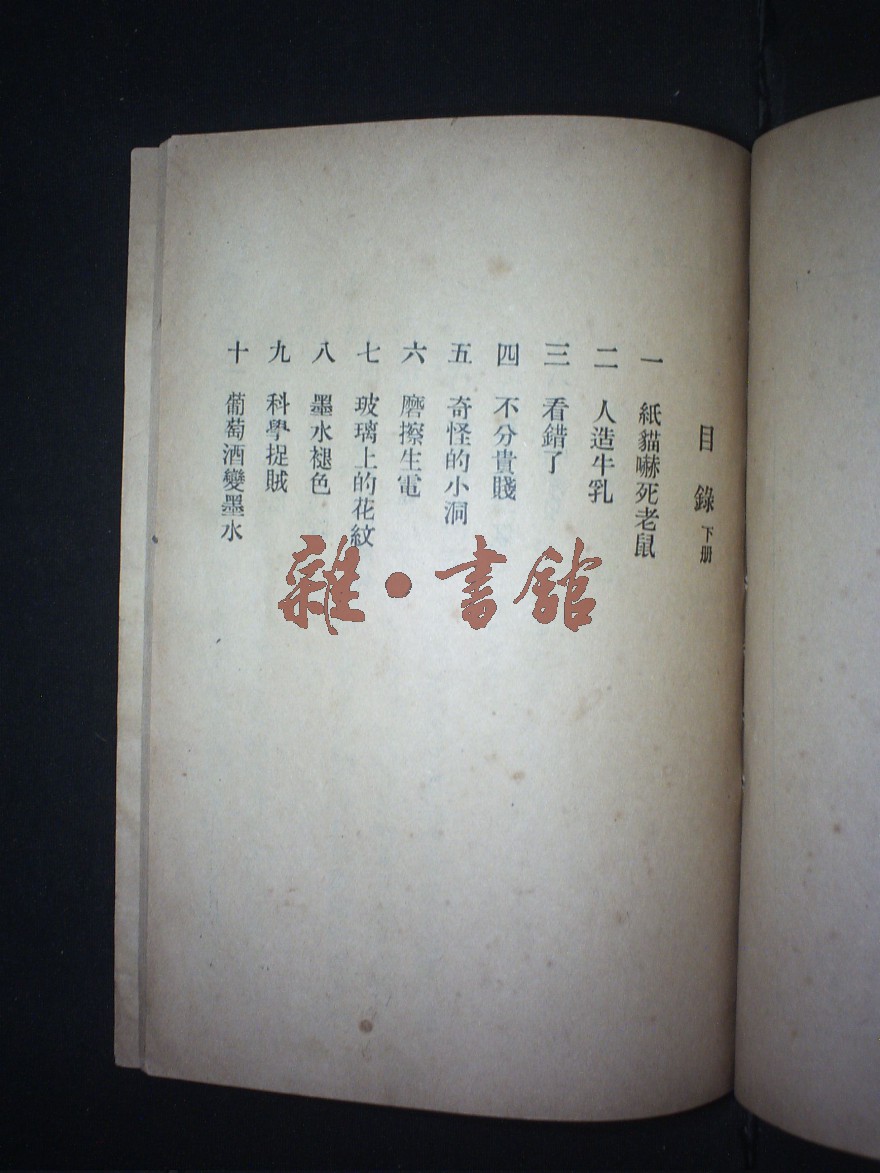 目錄 下册
一 紙貓嚇死老鼠
二 人造牛乳
三 看錯了
四 不分貴賤
五 奇怪的小洞
六 磨擦生電
七 玻璃上的花紋
八 墨水褪色
九 科學捉賊
十 葡萄酒變墨水
雜·書館